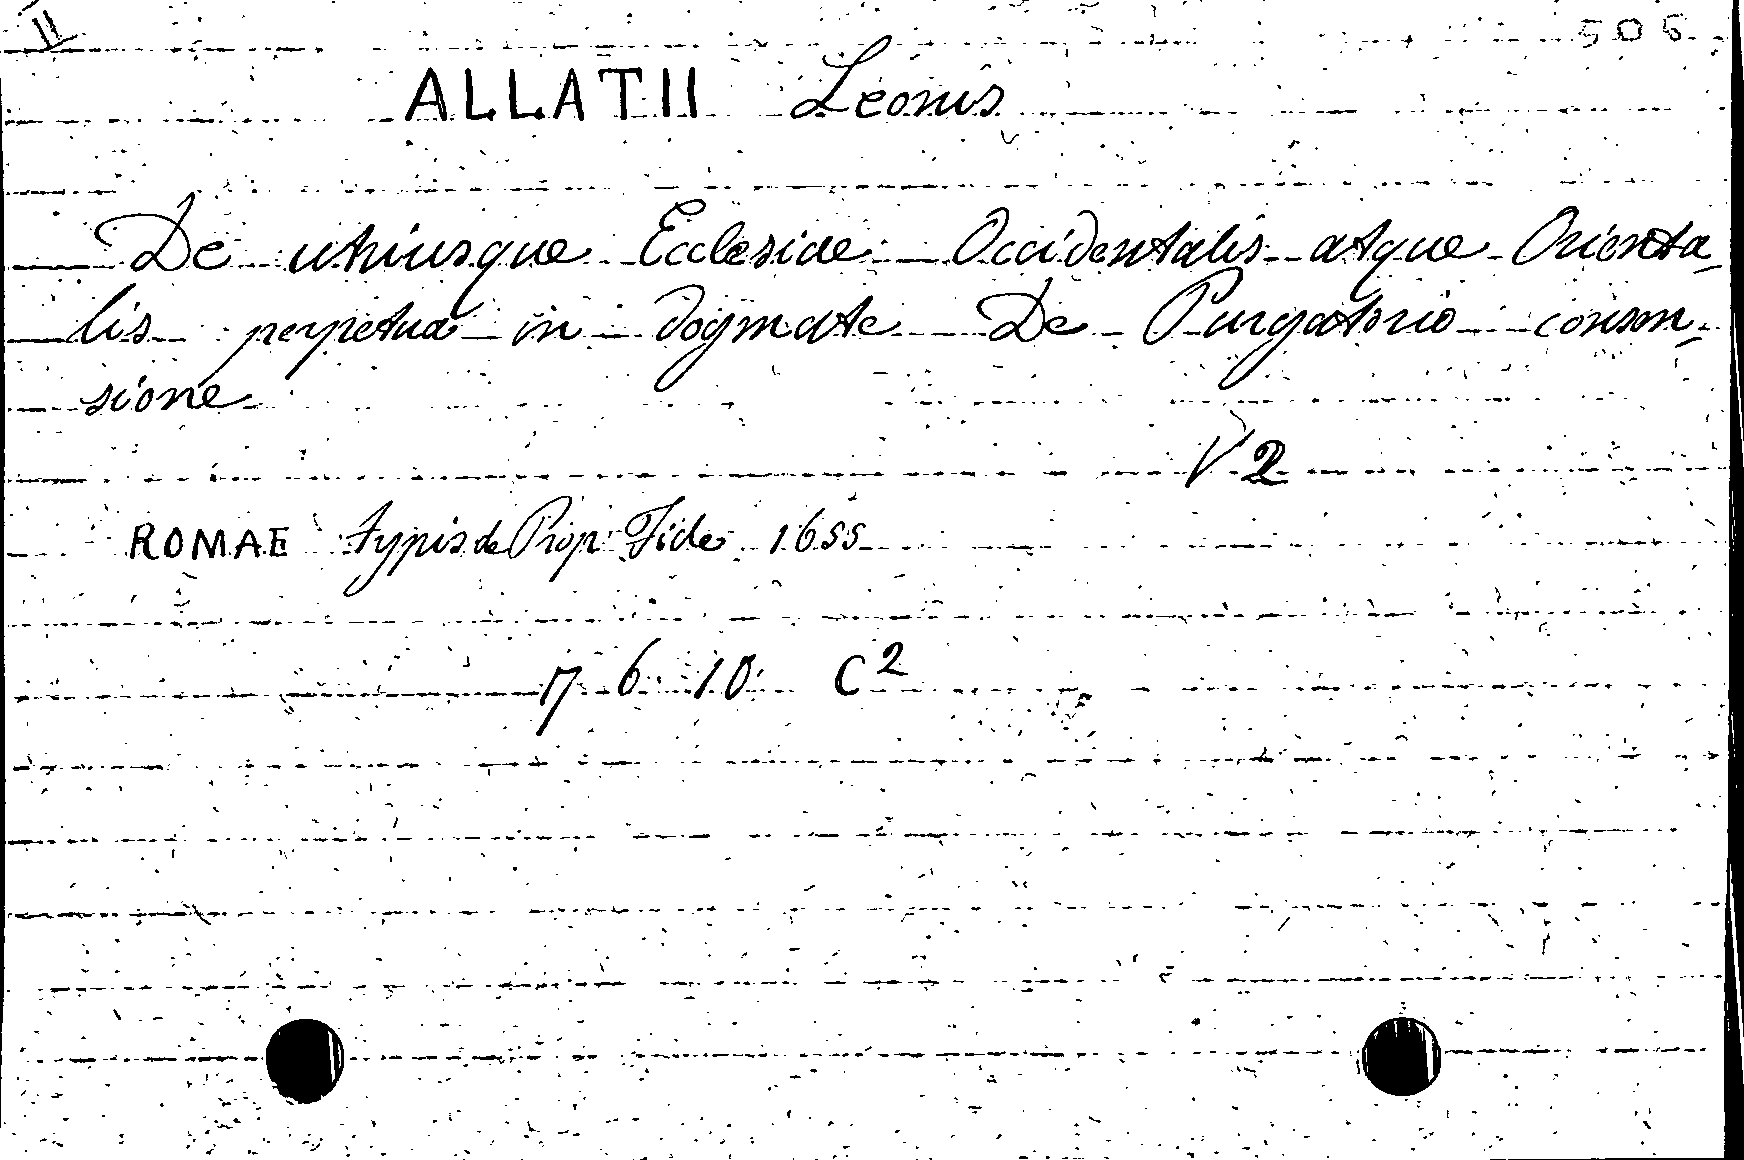 II 506
ALLATII Leonis
De utriusque Ecclesiae Occidentalis atque Orienta-
lis perpetua in dogmate De Purgatorio consen-
sione
V 2
ROMAE typis de Prop Fide 1655
17 6 10 C2